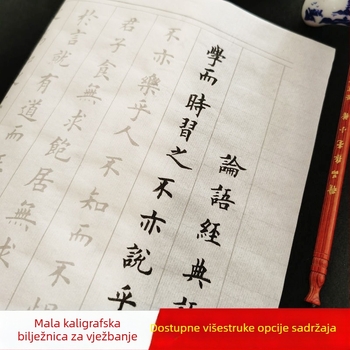 論語經典
學而時習之不亦說乎
不亦樂乎人不知而不
君子食無求飽居無求
於言就有道而
Mala kaligrafska
bilježnica za vježbanje
Dostupne višestruke opcije sadržaja